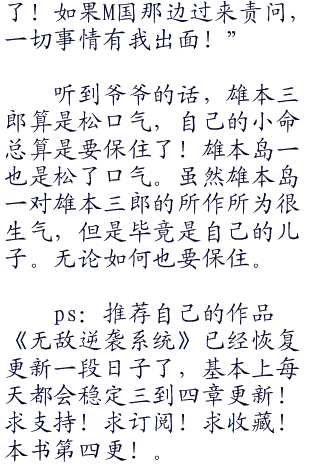 了！如果M国那边过来责问，
一切事情有我出面！”
听到爷爷的话，雄本三
郎算是松口气，自己的小命
总算是要保住了！雄本岛一
也是松了口气。虽然雄本岛
一对雄本三郎的所作所为很
生气，但是毕竟是自己的儿
子。无论如何也要保住。
ps：推荐自己的作品
《无敌逆袭系统》已经恢复
更新一段日子了，基本上每
天都会稳定三到四章更新！
求支持！求订阅！求收藏！
本书第四更！。